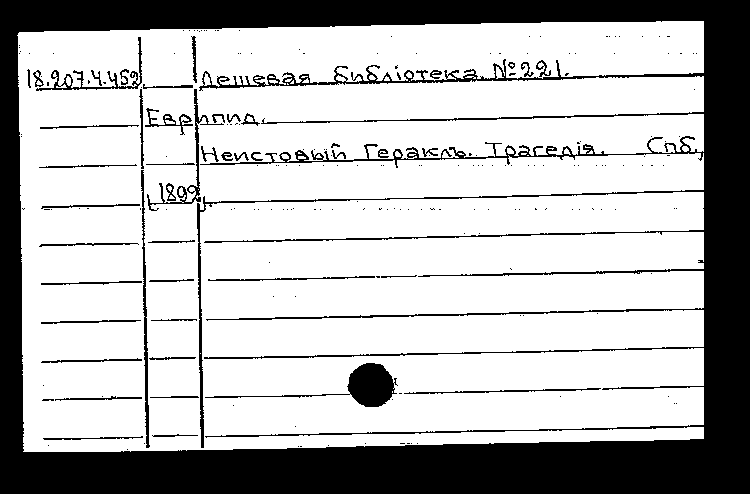 18.207.4.452 Дешевая библіотека. №221.
Еврипид.
Неистовый Гераклъ. Трагедія. Спб,
[1892].